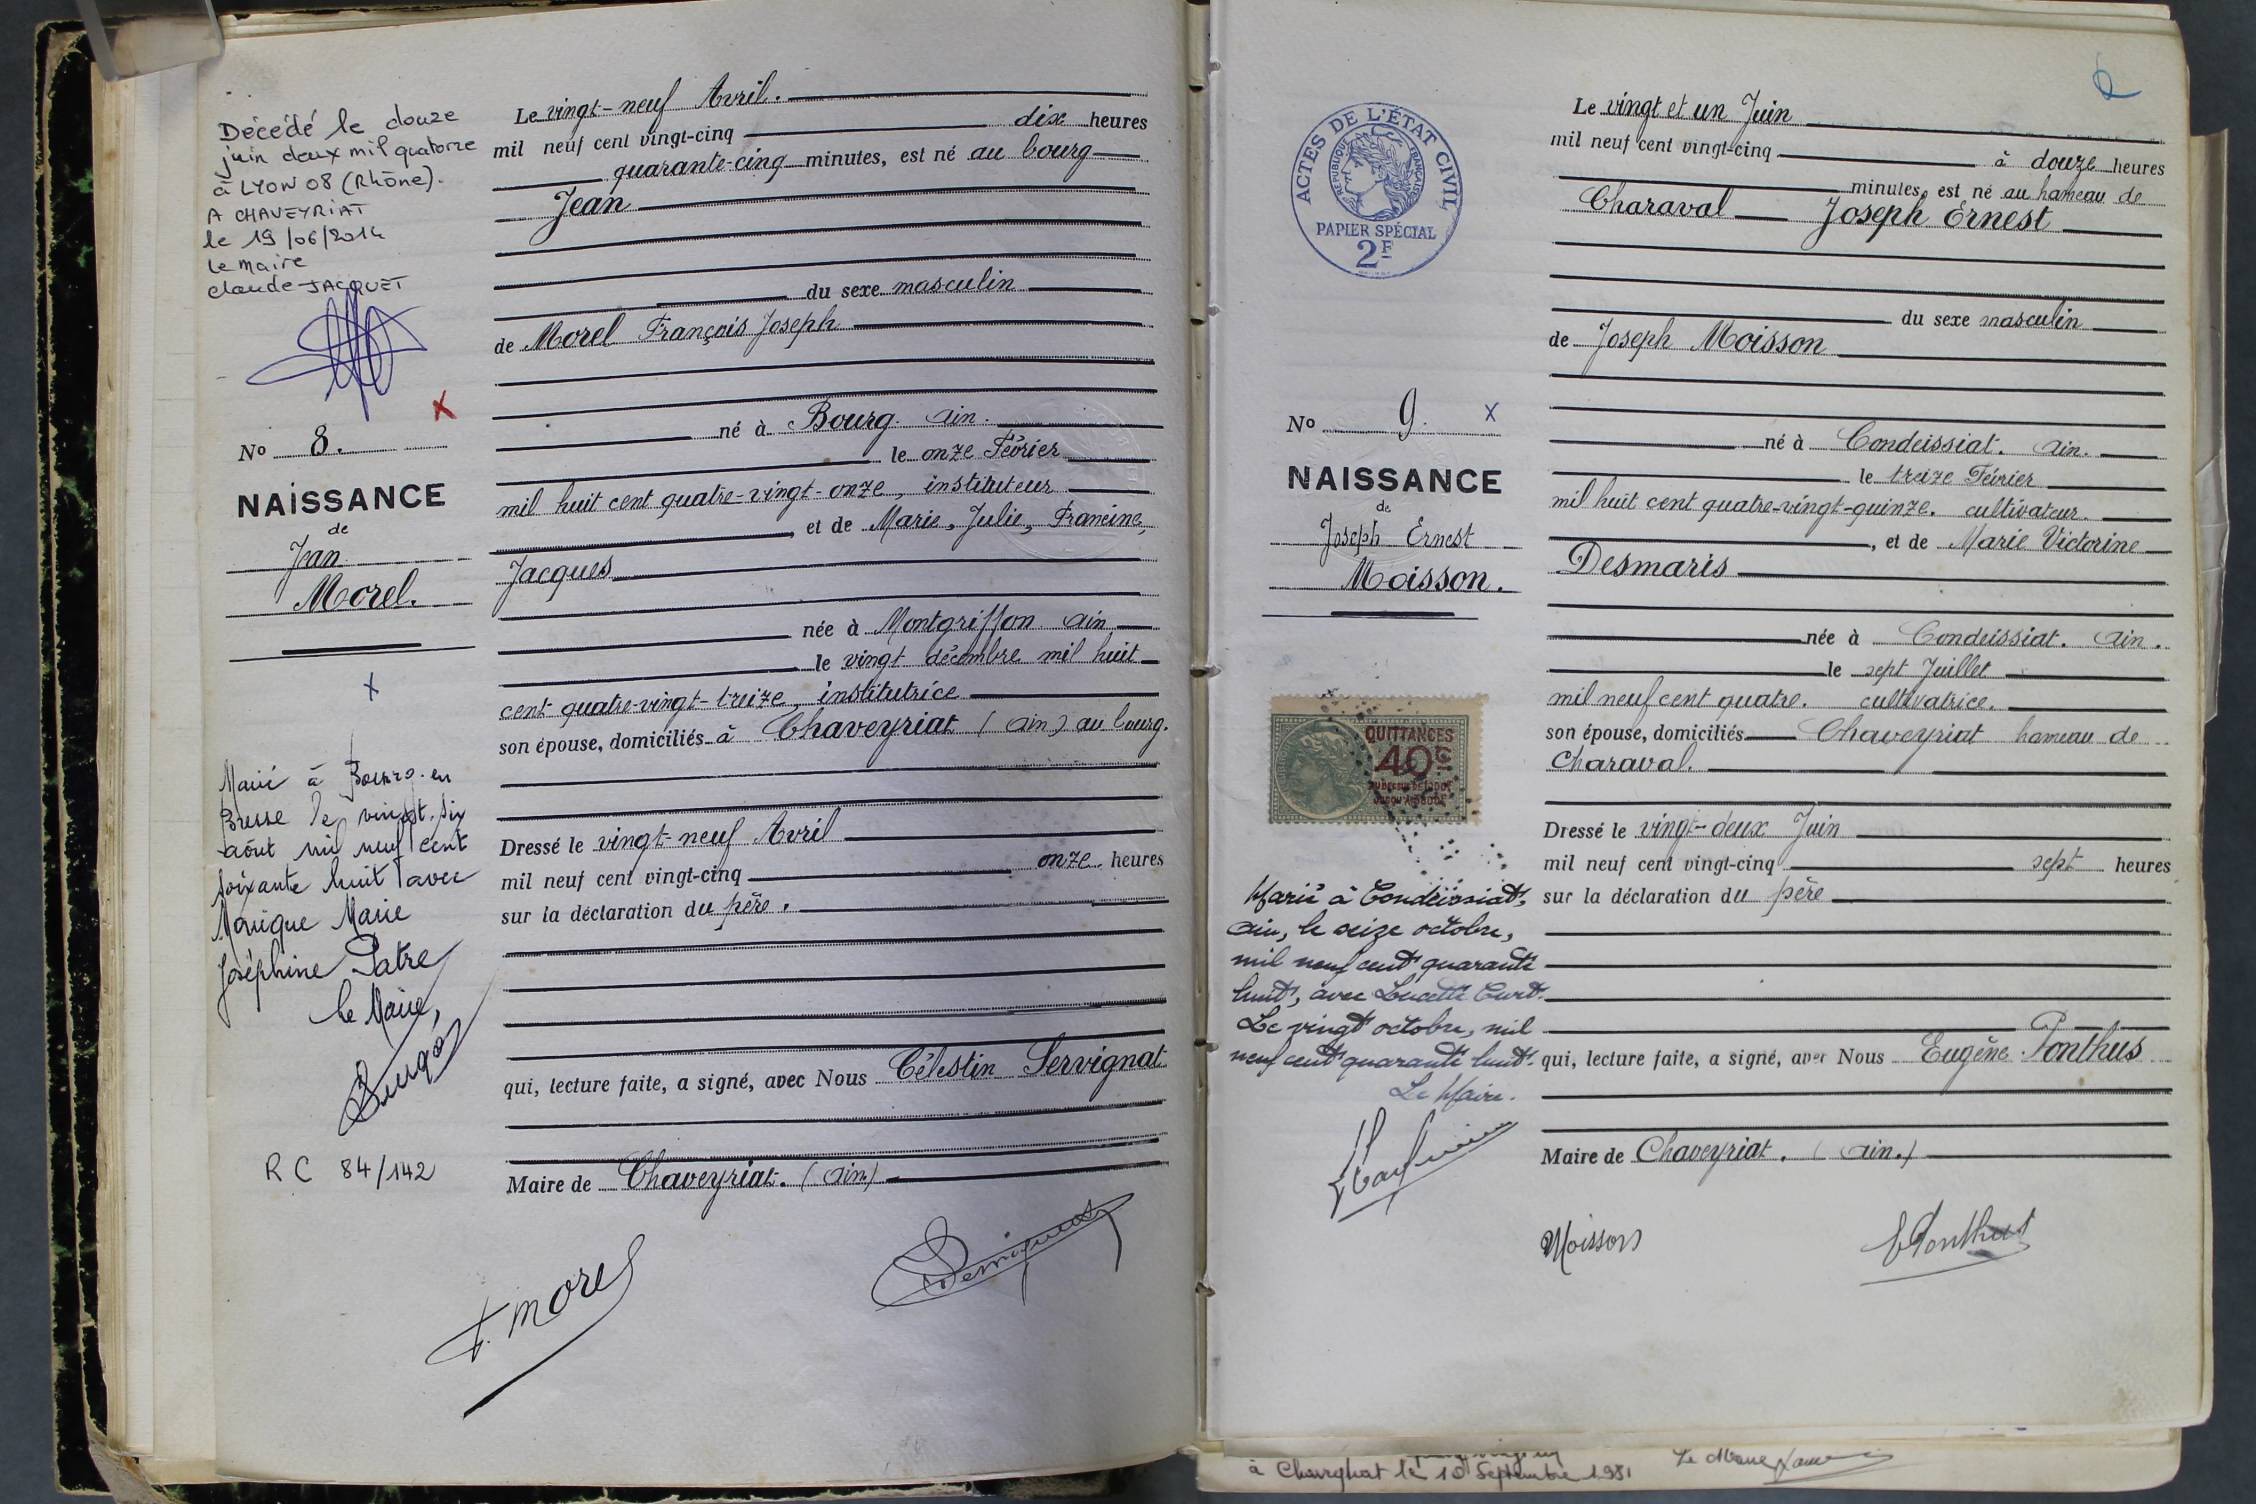 Décédé le douze
juin deux mil quatorze
à LYON 08 (Rhône).
A CHAVEYRIAT
le 19/06/2014
le maire
claude JACQUET
X
No 8.
NAISSANCE
de
Jean
Morel.
x
Marié à Bourg-en
Bresse le vingt-six
août mil neuf cent
soixante huit avec
Monique Marie
Joséphine Patre
le Maire,
R C 84/142
Le vingt-neuf Avril.
mil neuf cent vingt-cinq dix heures
quarante-cinq minutes, est né au bourg
Jean
du sexe masculin
de Morel François Joseph
né à Bourg. Ain.
le onze Février
mil huit cent quatre-vingt-onze, instituteur
, et de Marie, Julie, Francine,
Jacques
née à Montgriffon Ain
le vingt décembre mil huit
cent quatre-vingt-treize, institutrice
son épouse, domiciliés à Chaveyriat (Ain) au bourg.
Dressé le vingt-neuf Avril
mil neuf cent vingt-cinq onze heures
sur la déclaration du père.
qui, lecture faite, a signé, avec Nous Célestin Servignat
Maire de Chaveyriat. (Ain)
F. Morel
6
ACTES DE L'ÉTAT CIVIL
RÉPUBLIQUE FRANÇAISE
PAPIER SPÉCIAL
2F
No 9. X
NAISSANCE
de
Joseph Ernest
Moisson.
QUITTANCES
40c
Marié à Condeissiat,
Ain, le seize octobre,
mil neuf cent quarante
huit, avec Lucette Curt.
Le vingt octobre, mil
neuf cent quarante huit.
Le Maire.
Le vingt et un Juin
mil neuf cent vingt-cinq à douze heures
minutes, est né au hameau de
Charaval Joseph Ernest
du sexe masculin
de Joseph Moisson
né à Condeissiat. Ain.
le treize Février
mil huit cent quatre-vingt-quinze. cultivateur.
, et de Marie Victorine
Desmaris
née à Condeissiat. Ain.
le sept Juillet
mil neuf cent quatre. cultivatrice.
son épouse, domiciliés Chaveyriat hameau de
Charaval.
Dressé le vingt-deux Juin
mil neuf cent vingt-cinq sept heures
sur la déclaration du père
qui, lecture faite, a signé, avec Nous Eugène Ponthus
Maire de Chaveyriat. (Ain.)
Moisson
E Ponthus
le 10 Septembre 1981 Le Maire